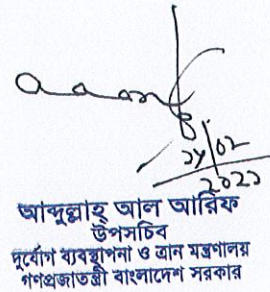 আব্দুল্লাহ্ আল আরিফ
উপসচিব
দুর্যোগ ব্যবস্থাপনা ও ত্রান মন্ত্রণালয়
গণপ্রজাতন্ত্রী বাংলাদেশ সরকার